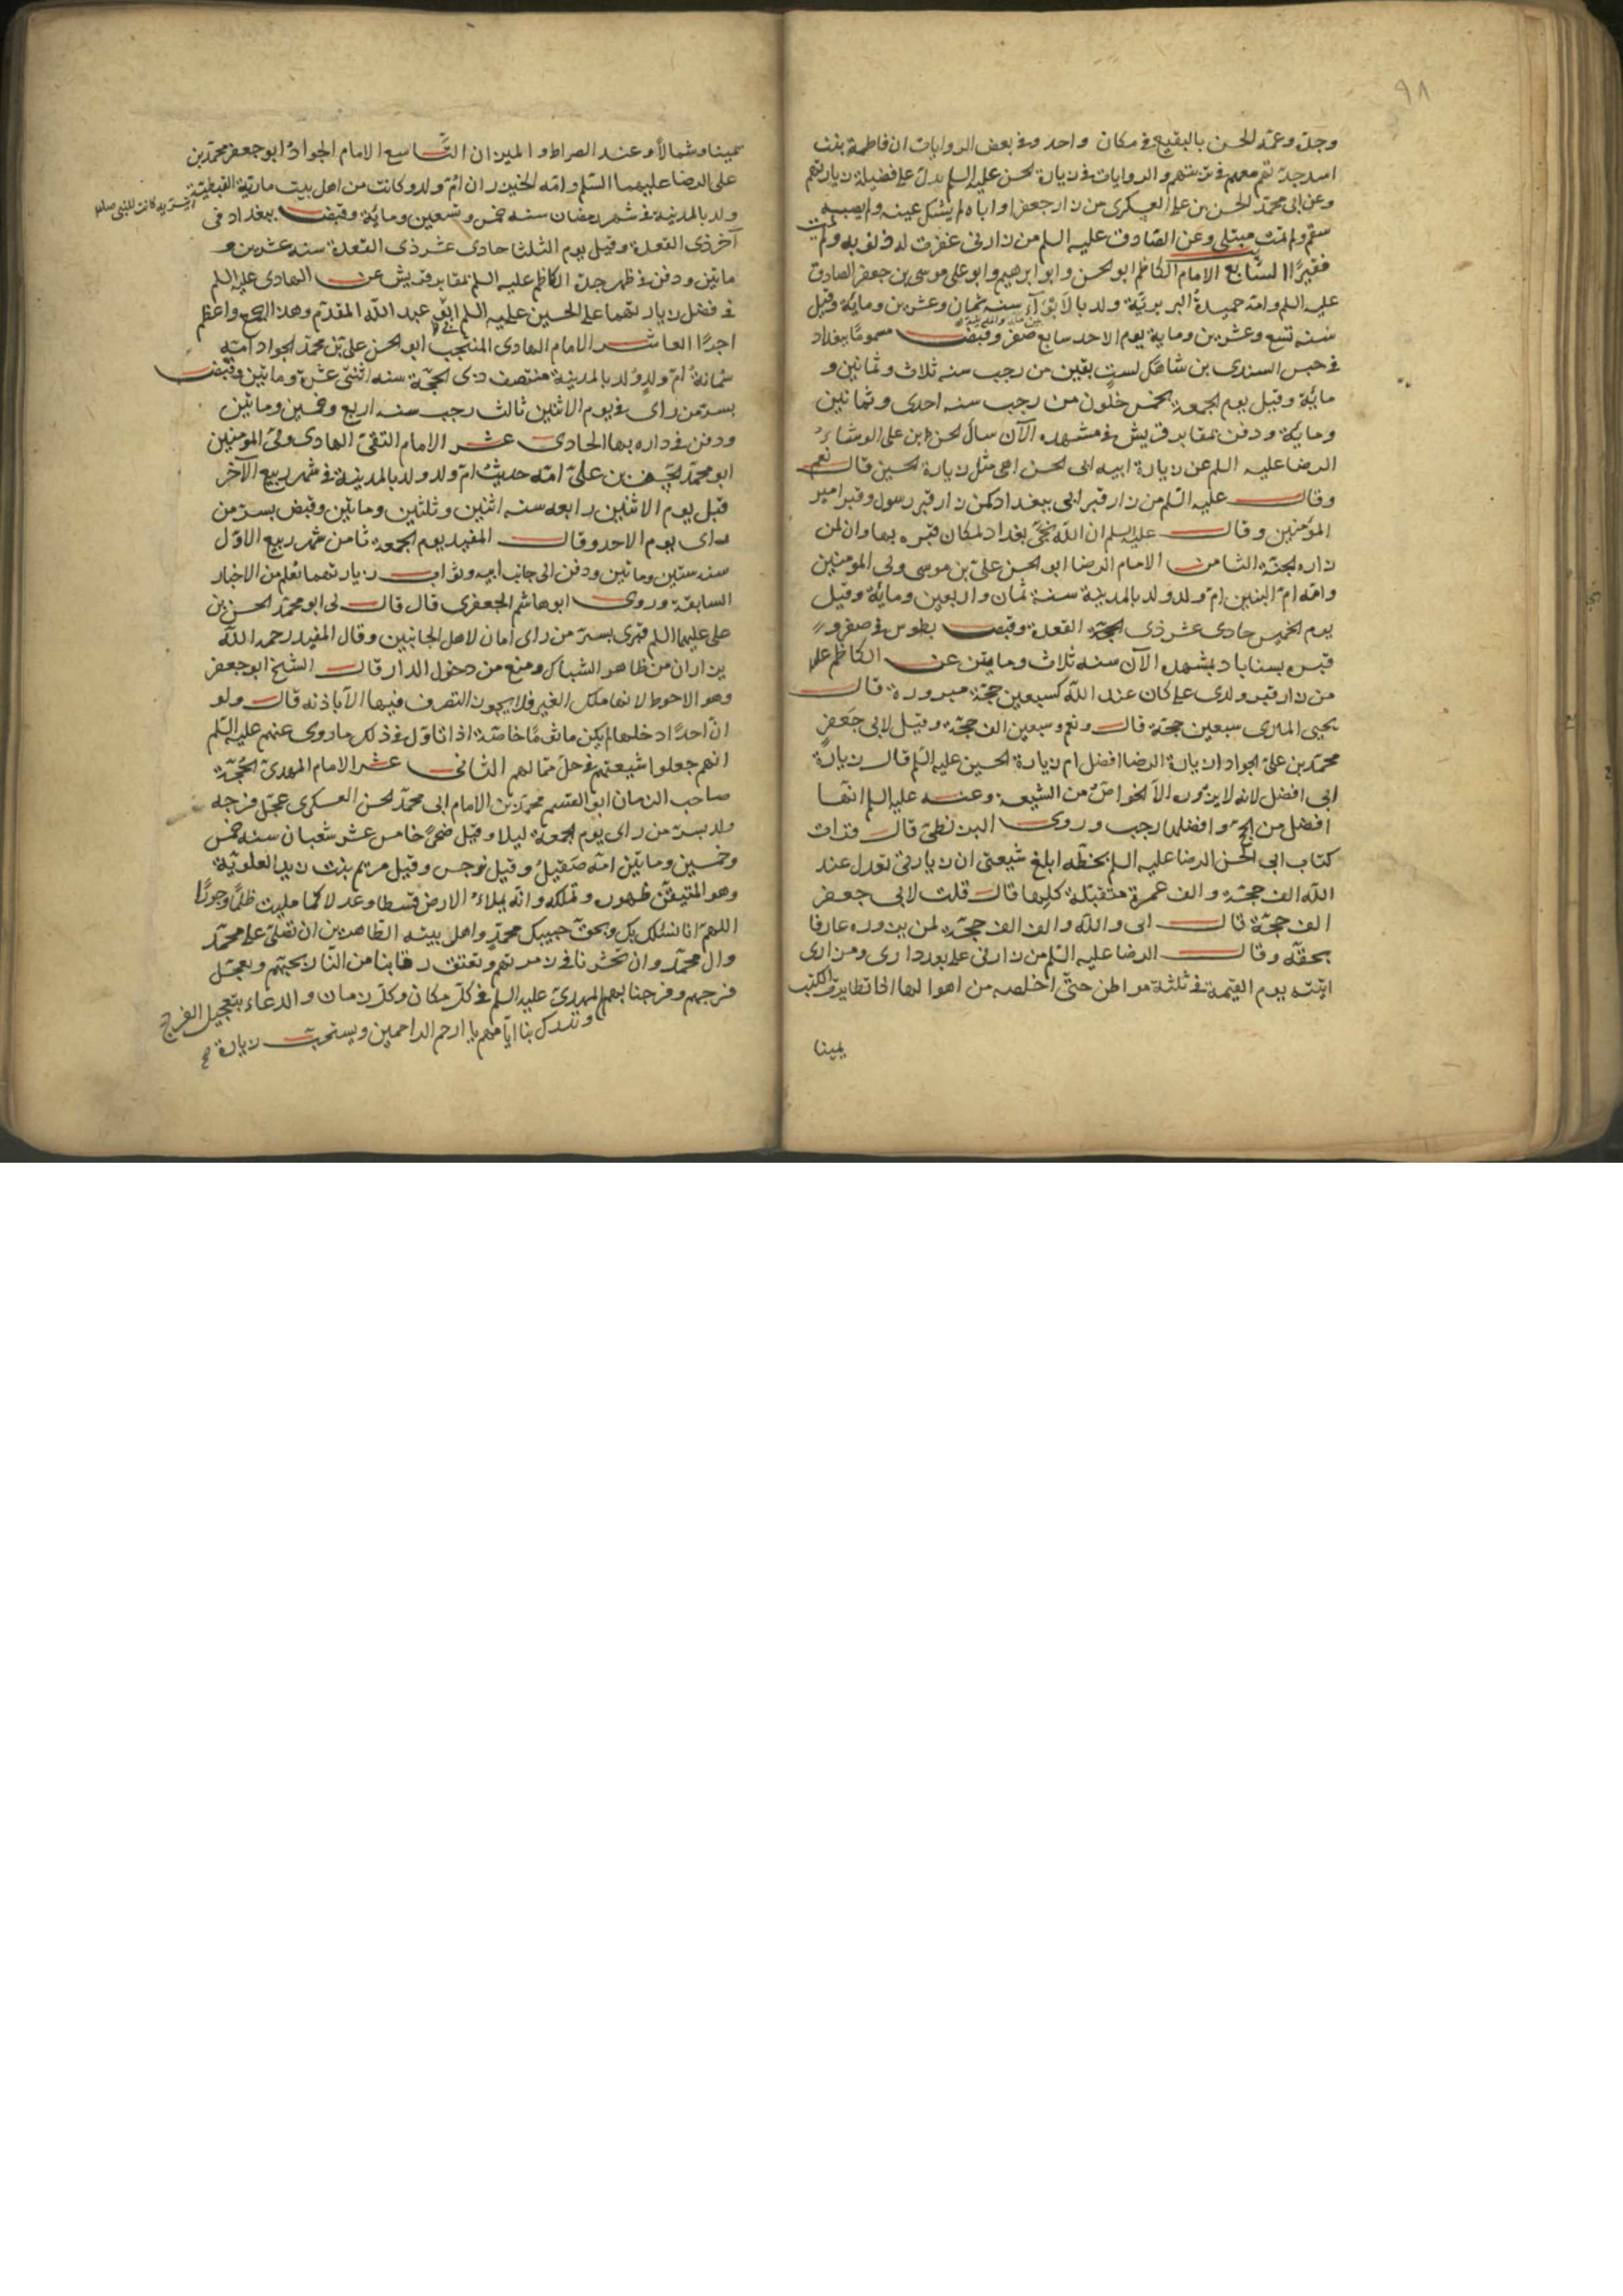 ٩٨
وجده وعمه الحسن بالبقيع فى مكان واحد وفى بعض الروايات ان فاطمة بنت
اسد جدتهم معهم فى تربتهم والروايات فى زيارة الحسن عليه السلم يدل على فضيلة زيارتهم
وعن ابى محمد الحسن بن على العسكرى من زار جعفرا واباه لم يشتك عينه ولم يصبه
سقم ولم يمت مبتلى وعن الصادق عليه السلم من زارنى غفرت له ذنوبه ولم يمت
فقيرًا السابع الامام الكاظم ابو الحسن وابو ابرهيم وابو على موسى بن جعفر الصادق
عليه السلم وامه حميدة البربرية ولد بالابوآء سنه ثمان وعشرين وماية وقيل
بين مكة والمدينة
سنه تسع وعشرين وماية يوم الاحد سابع صفر وقبض مسمومًا ببغداد
فى حبس السندى بن شاهك لست بقين من رجب سنه ثلاث وثمانين و
مائة وقيل يوم الجمعة لخمس خلون من رجب سنه احدى وثمانين
وماية ودفن بمقابر قريش فى مشهده الآن سال الحسن ابن على الوشاء
الرضا عليه السلم عن زيارة ابيه ابى الحسن اهى مثل زيارة الحسين قال نعم
وقال عليه السلم من زار قبر ابى ببغداد كمن زار قبر رسول وقبر امير
المؤمنين وقال عليه السلم ان الله نجى بغداد لمكان قبره بها وان لمن
زاره الجنة الثامن الامام الرضا ابو الحسن على بن موسى ولى المومنين
وامه ام البنين ام ولد ولد بالمدينة سنة ثمان واربعين ومائة وقيل
يوم الخميس حادى عشر ذى القعدة وقبض بطوس فى صفر و
قبره بسناباد بمشهده الآن سنه ثلاث ومايتين عن الكاظم علم
من زار قبر ولدى على كان عند الله كسبعين حجة مبرورة قال
يحيى المازنى سبعين حجة قال ونعم وسبعين الف حجة وقيل لابى جعفر
محمد بن على الجواد زيارة الرضا افضل ام زيارة الحسين عليه السلم قال زيارة
ابى افضل لانه لا يزوره الا الخواص من الشيعة وعنه عليه السلم انها
افضل من الحج وافضلها رجب وروى البزنطى قال قرات
كتاب ابى الحسن الرضا عليه السلم بخطه ابلغ شيعتى ان زيارتى تعدل عند
الله الف حجة والف عمرة متقبلة كلها قال قلت لابى جعفر
الف حجة قال اى والله والف الف حجة لمن يزوره عارفا
بحقه وقال الرضا عليه السلم من زارنى على بعد دارى ومزارى
اتيته يوم القيمة فى ثلثة مواطن حتى اخلصه من اهوالها اذا تطايرت الكتب
يمينا
يمينا وشمالا وعند الصراط والميزان التاسع الامام الجواد ابو جعفر محمد بن
على الرضا عليهما السلم وامه الخيزران ام ولد وكانت من اهل بيت مارية القبطية
ولد بالمدينة فى شهر رمضان سنه خمس وتسعين ومائة وقبض ببغداد فى
آخر ذى القعدة وقيل يوم الثلثا حادى عشر ذى القعدة سنه عشرين و
ماتين ودفن فى ظهر جده الكاظم عليه السلم بمقابر قريش عن الهادى عليه السلم
فى فضل زيارتهما على الحسين عليه السلم ابى عبد الله المقدم وهذا اجمع واعظم
اجرًا العاشر الامام الهادى المنتجب ابو الحسن على بن محمد الجواد امه
سمانة ام ولد ولد بالمدينة منتصف ذى الحجة سنه اثنتى عشرة وماتين وقبض
بسر من راى فى يوم الاثنين ثالث رجب سنه اربع وخمسين وماتين
ودفن فى داره بها الحادى عشر الامام التقى الهادى ولى المومنين
ابو محمد الحسن بن على امه حديث ام ولد ولد بالمدينة فى شهر ربيع الآخر
قيل يوم الاثنين رابعه سنه اثنين وثلثين وماتين وقبض بسر من
راى يوم الاحد وقال المفيد يوم الجمعة ثامن شهر ربيع الاول
سنه ستين وماتين ودفن الى جانب ابيه وثواب زيارتهما تعلم من الاخبار
السابقة وروى ابو هاشم الجعفرى قال قال لى ابو محمد الحسن بن
على عليهما السلم قبرى بسر من راى امان لاهل الجانبين وقال المفيد رحمه الله
يزاران من ظاهر الشباك ومنع من دخول الدار قال الشيخ ابو جعفر
وهو الاحوط لانها ملك الغير فلا يجوز التصرف فيها الا باذنه قال ولو
ان احدًا دخلها لم يكن ماثومًا خاصة اذا تاول فى ذلك ما روى عنهم عليه السلم
انهم جعلوا شيعتهم فى حل مما لهم الثانى عشر الامام المهدى الحجة
صاحب الزمان ابو القسم محمد بن الامام ابى محمد الحسن العسكرى عجل فرجه
ولد بسر من راى يوم الجمعة ليلا وقيل ضحى خامس عشر شعبان سنه خمس
وخمسين وماتين امه صقيل وقيل نرجس وقيل مريم بنت زيد العلوية
وهو المتيقن ظهوره وتملكه وانه يملاء الارض قسطا وعدلا كما مليت ظلمًا وجورًا
اللهم انا نسئلك بك وبحق حبيبك محمد واهل بيته الطاهرين ان تصلى على محمد
وال محمد وان تحشرنا فى زمرتهم وتعتق رقابنا من النار بحبهم وتعجل
فرجهم وفرجنا بهم المهدى عليه السلم فى كل مكان وكل زمان والدعاء بتعجيل الفرج
وتدرك بنا ايامهم يا ارحم الراحمين ويستحب زيارة